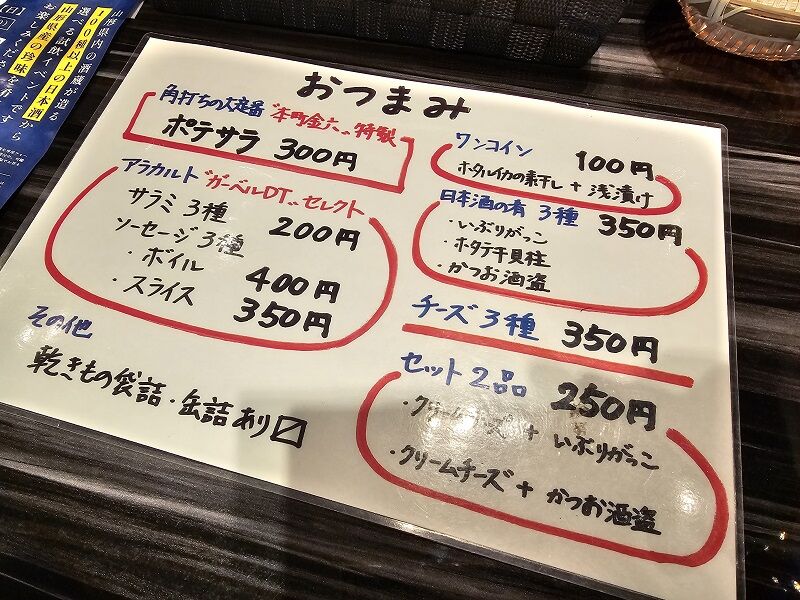 おつまみ
角打ちの大定番 "本町金六"特製
ポテサラ 300円
アラカルト "ガーベルDT"セレクト
サラミ3種 200円
ソーセージ3種
・ボイル 400円
・スライス 350円
その他
乾きもの袋詰・缶詰あり〼
ワンコイン 100円
ホタルイカの素干し + 浅漬け
日本酒の肴 3種 350円
・いぶりがっこ
・ホタテ干貝柱
・かつお酒盗
チーズ3種 350円
セット2品 250円
・クリームチーズ + いぶりがっこ
・クリームチーズ + かつお酒盗
山形県内の酒蔵が造る
100種以上の日本酒から
選べる試飲イベントです
山形県産の珍味